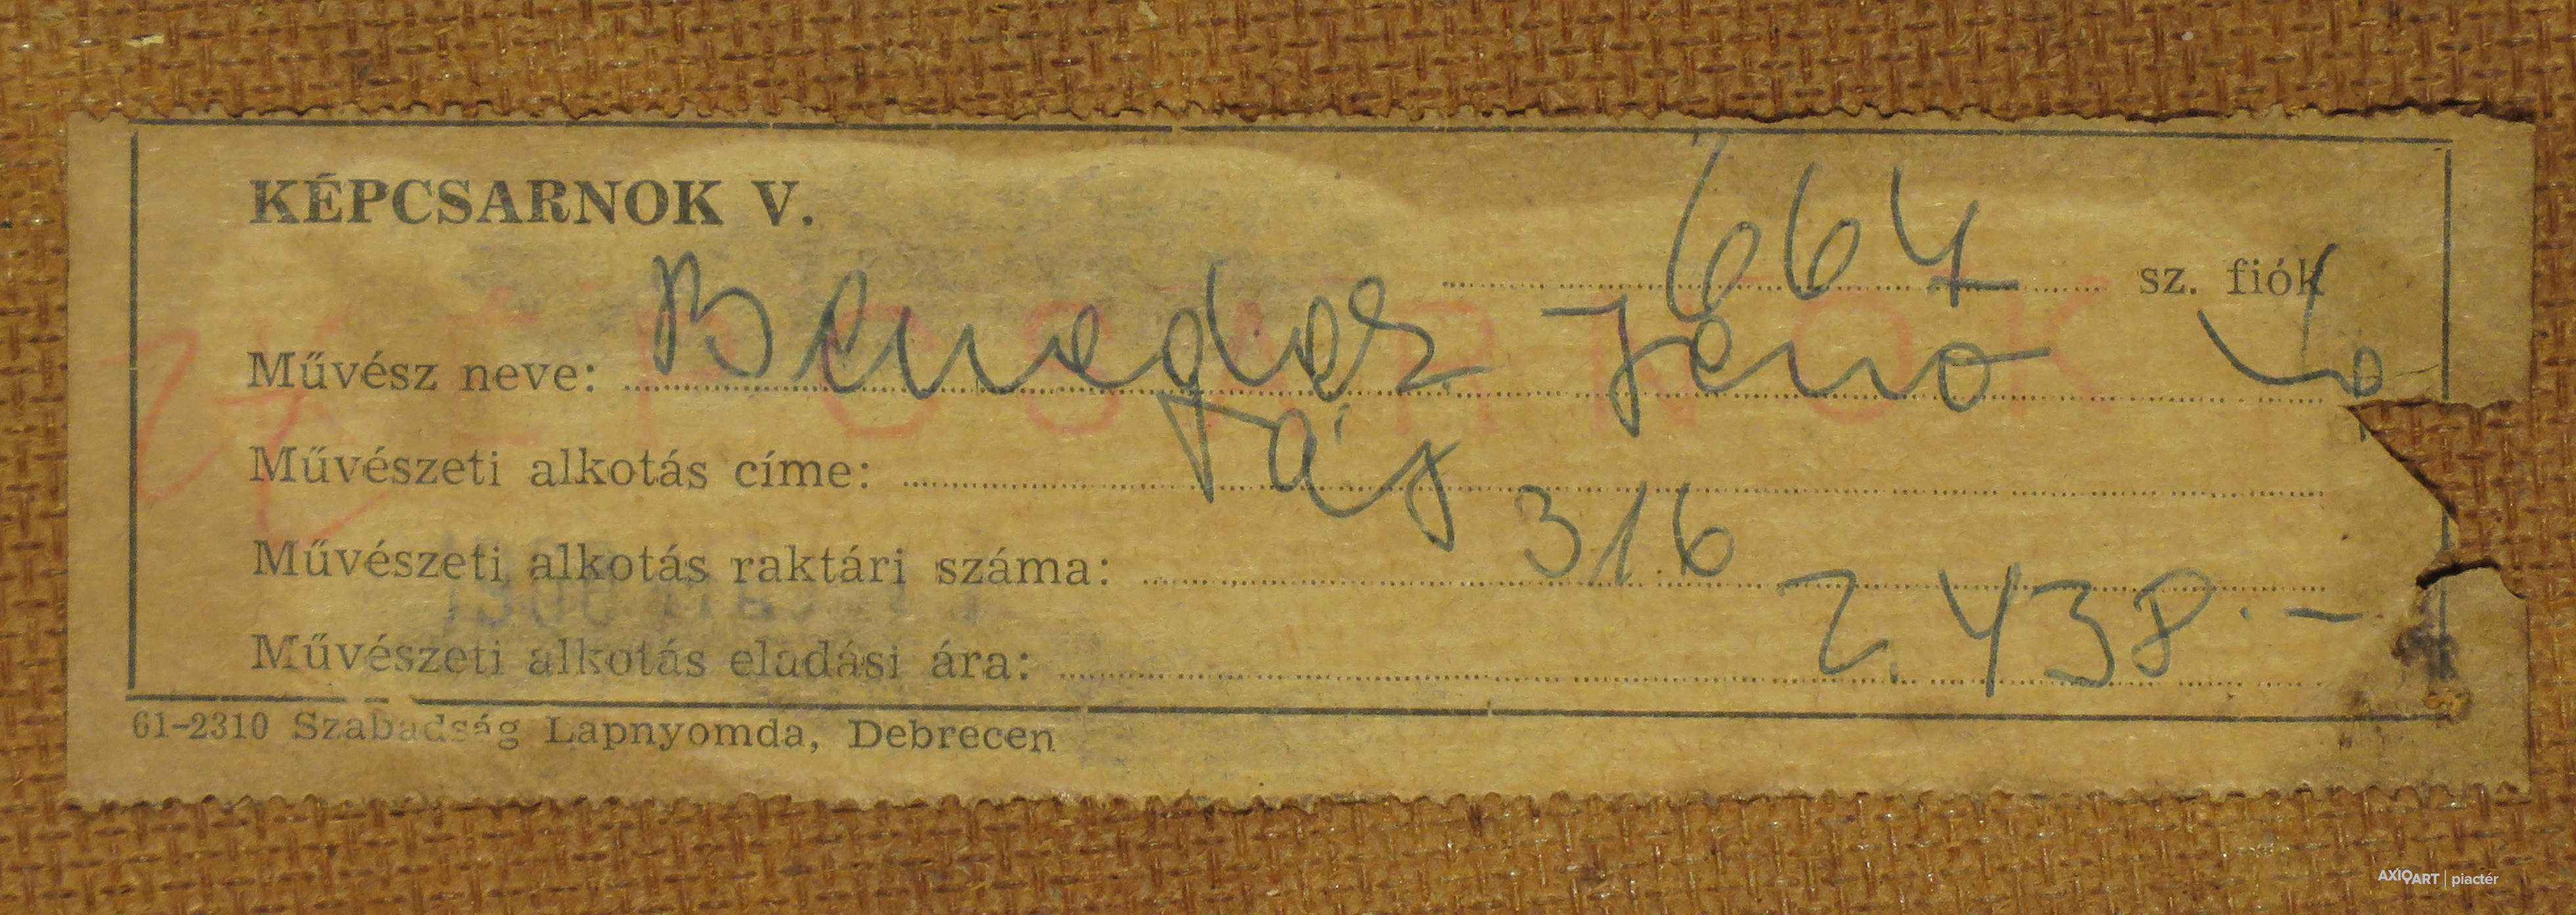 KÉPCSARNOK V.
664 sz. fiók
Művész neve: Benedek Jenő
Művészeti alkotás címe: Táj
Művészeti alkotás raktári száma: 316
Művészeti alkotás eladási ára: 2.438.-
61-2310 Szabadság Lapnyomda, Debrecen
KÉPCSARNOK
AXIOART | piactér